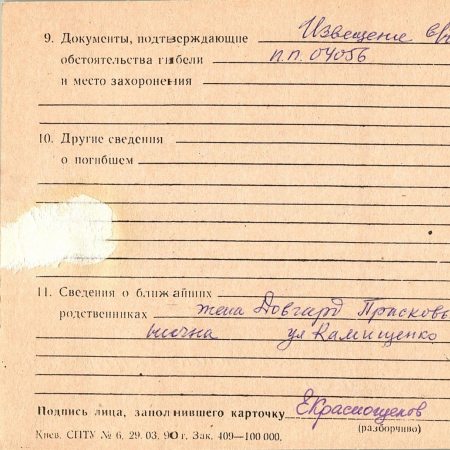 9. Документы, подтверждающие Извещение в/ч
обстоятельства гибели п.п. 04056
и место захоронения
10. Другие сведения
о погибшем
11. Сведения о ближайших
родственниках жена Довгард Прасковь
ул Камищенко
Подпись лица, заполнившего карточку ЕКраснощеков
(разборчиво)
Киев. СПТУ № 6, 29. 03. 90 г. Зак. 409—100 000.